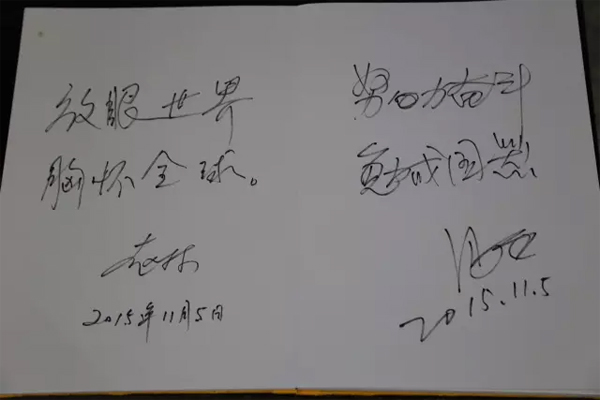 放眼世界
胸怀全球。
2015年11月5日
努力奋斗
勉成国器
2015.11.5